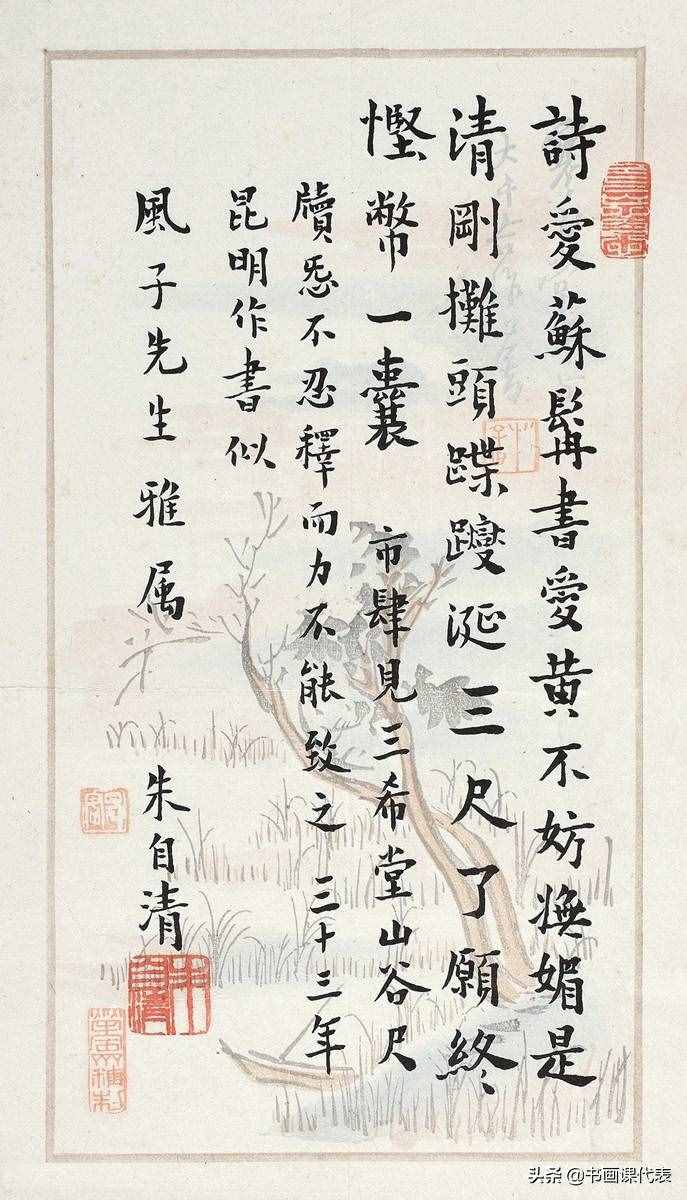 詩愛蘇髯書愛黄不妨嫵媚是
清剛攤頭蹀躞涎三尺了願終
慳幣一囊 市肆見三希堂山谷尺
牘㤅不忍釋而力不能致之 三十三年
昆明作書似
風子先生雅属 朱自清
朱自清
头条 @书画课代表